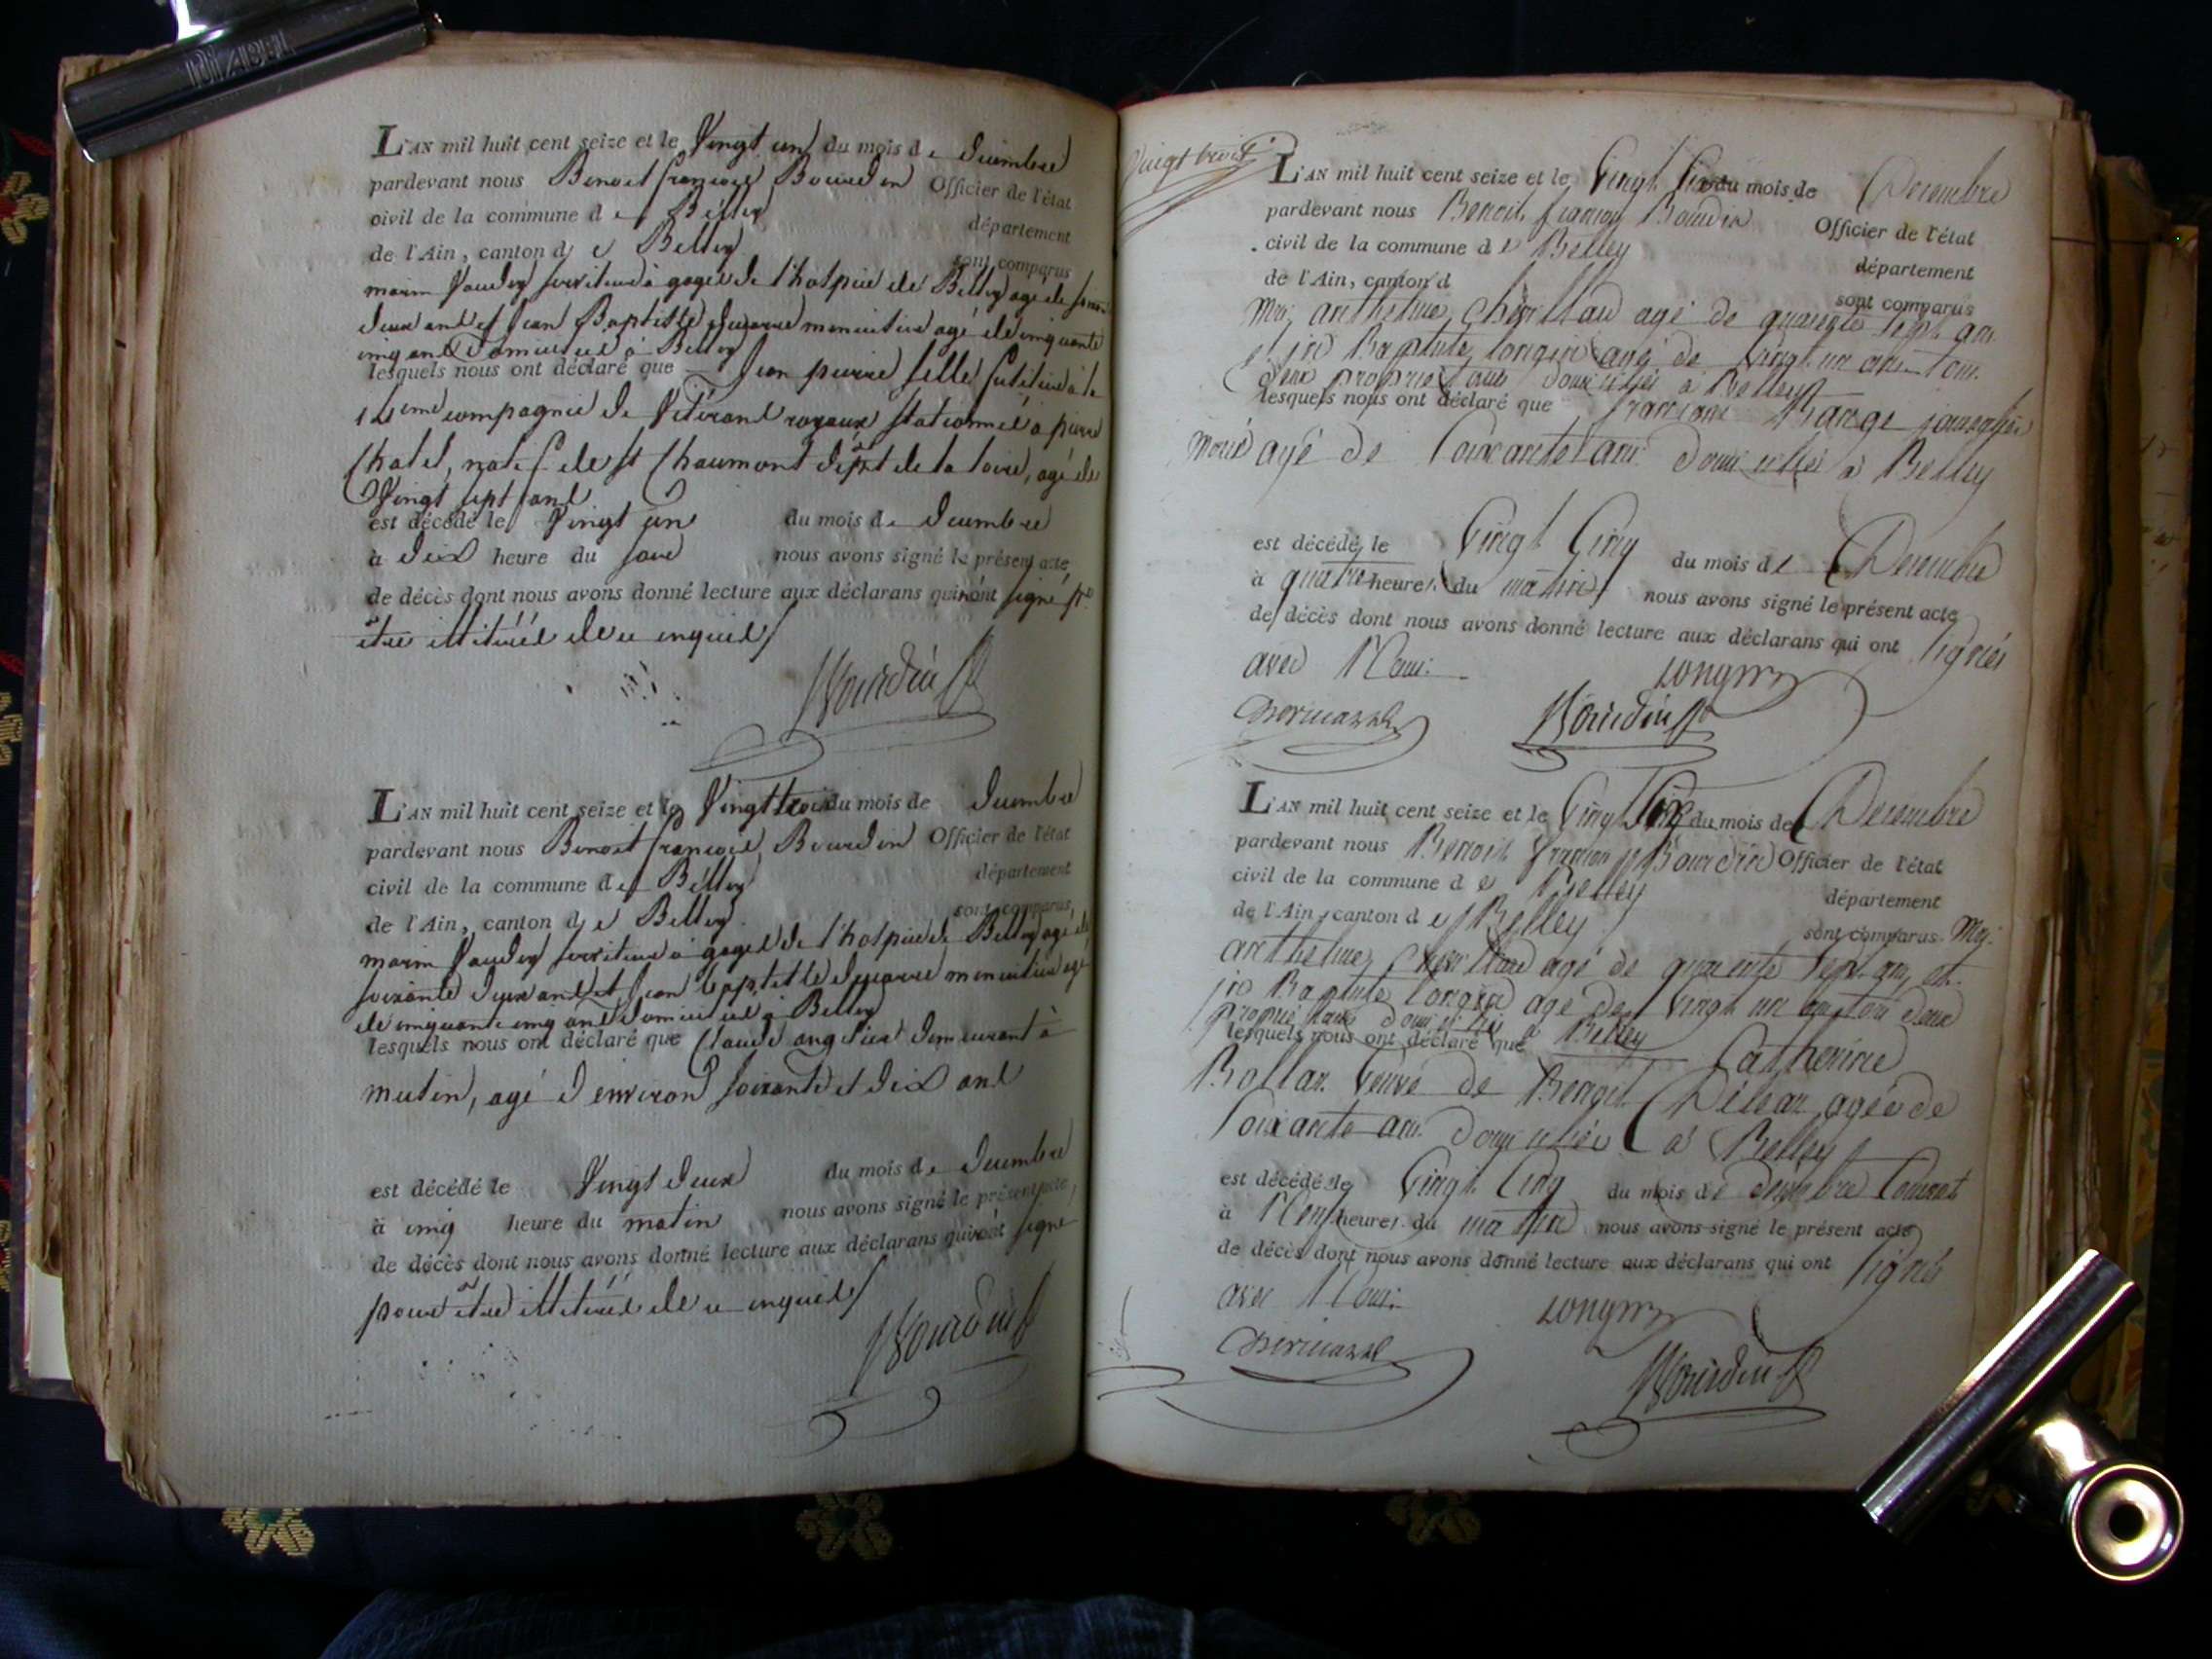 L'AN mil huit cent seize et le Vingt un du mois de decembre
pardevant nous Benoit françois Bourdin Officier de l'état
civil de la commune de Belley
département
de l'Ain, canton de Belley
sont comparus
marin serviteur à gages de l'hospice de Belley agé de
deux ans et Jean Baptiste menuisier agé de cinquante
cinq ans Domiciliés à Belley
lesquels nous ont déclaré que Jean pierre à la
compagnie de Vétérans royaux stationnée à pierre
Chatel, natif de St Chaumont dépt de la loire, agé de
Vingt sept ans
est décédé le Vingt un du mois de decembre
à dix heure du soir nous avons signé le présent acte
de décès dont nous avons donné lecture aux déclarans qui n'ont signé pr
être illitérés de ce enquis
Bourdin
L'AN mil huit cent seize et le Vingt trois du mois de decembre
pardevant nous Benoit françois Bourdin Officier de l'état
civil de la commune de Belley
département
de l'Ain, canton de Belley
sont comparus
marin serviteur à gages de l'hospice de Belley agé de
soixante deux ans et Jean baptiste menuisier agé
de cinquante cinq ans domiciliés à Belley
lesquels nous ont déclaré que Claude demeurant à
agé d'environ soixante et dix ans
est décédé le Vingt deux du mois de decembre
à cinq heure du matin nous avons signé le présent acte
de décès dont nous avons donné lecture aux déclarans qui n'ont signé
pour être illitérés de ce enquis
Bourdin
Vingt trois
L'AN mil huit cent seize et le Vingt Six du mois de Decembre
pardevant nous Benoit françois Bourdin Officier de l'état
civil de la commune de Belley
département
de l'Ain, canton d
sont comparus
anthelme agé de quarante Sept ans
et jn Baptiste Longin agé de Vingt un ans tous
deux propriétaires domiciliés à Belley
lesquels nous ont déclaré que journalier
agé de Soixante ans domicilié à Belley
est décédé le Vingt Cinq du mois de Decembre
à quatre heures du matin nous avons signé le présent acte
de décès dont nous avons donné lecture aux déclarans qui ont signés
avec Nous
Longin
Bourdin
L'AN mil huit cent seize et le Vingt Six du mois de Decembre
pardevant nous Benoit françois Bourdin Officier de l'état
civil de la commune de Belley
département
de l'Ain, canton de Belley
sont comparus
anthelme agé de quarante Sept ans et
jn Baptiste Longin agé de Vingt un ans tous deux
propriétaires domiciliés à Belley
lesquels nous ont déclaré que Catherine
veuve de Benoit agée de
Soixante ans domiciliée à Belley
est décédé le Vingt Cinq du mois de decembre Courant
à Neuf heures du matin nous avons signé le présent acte
de décès dont nous avons donné lecture aux déclarans qui ont signé
avec Nous
Longin
Bourdin